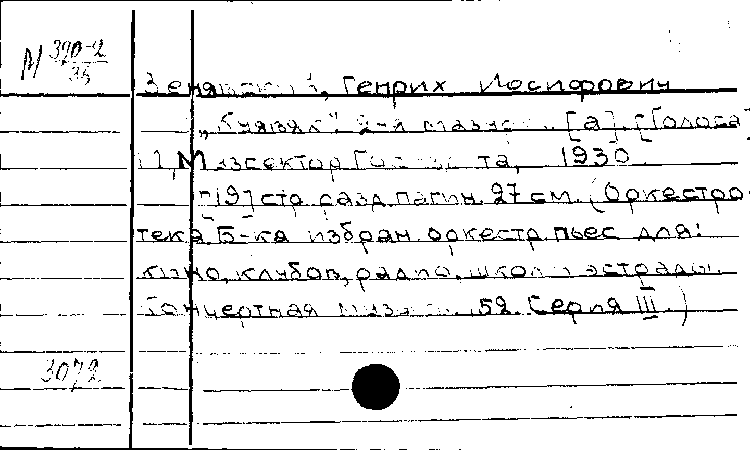 М 390-2
35
Генрих Иосифович
2-я [а]. [Голоса]
М., Музсектор 1930
[19] стр. разд. пагин. 27 см. (Оркестро-
тека. Б-ка избран. оркестр. пьес для:
кино, клубов, радио, школ и эстрады.
Концертная 52. Серия III.)
3072